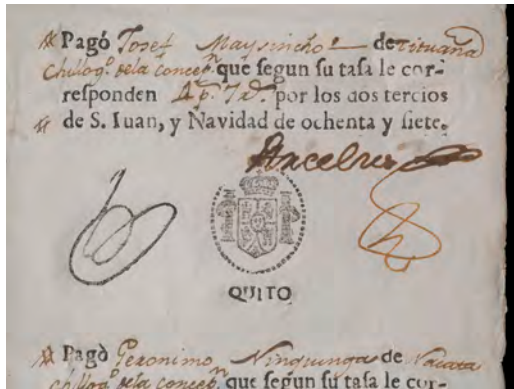 Pagó Josef Maysincho de Tituaña
Chillog.ˢ dela concep.ⁿ que segun su tasa le cor-
responden 4 p.ˢ 7 r.ˢ por los dos tercios
de S. Iuan, y Navidad de ochenta y siete.
QUITO
Pagò Geronimo de
dela concep. que segun su tasa le cor-